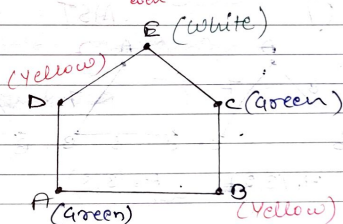 E (White)
(Yellow)
D
C (Green)
A
B
(Green)
(Yellow)